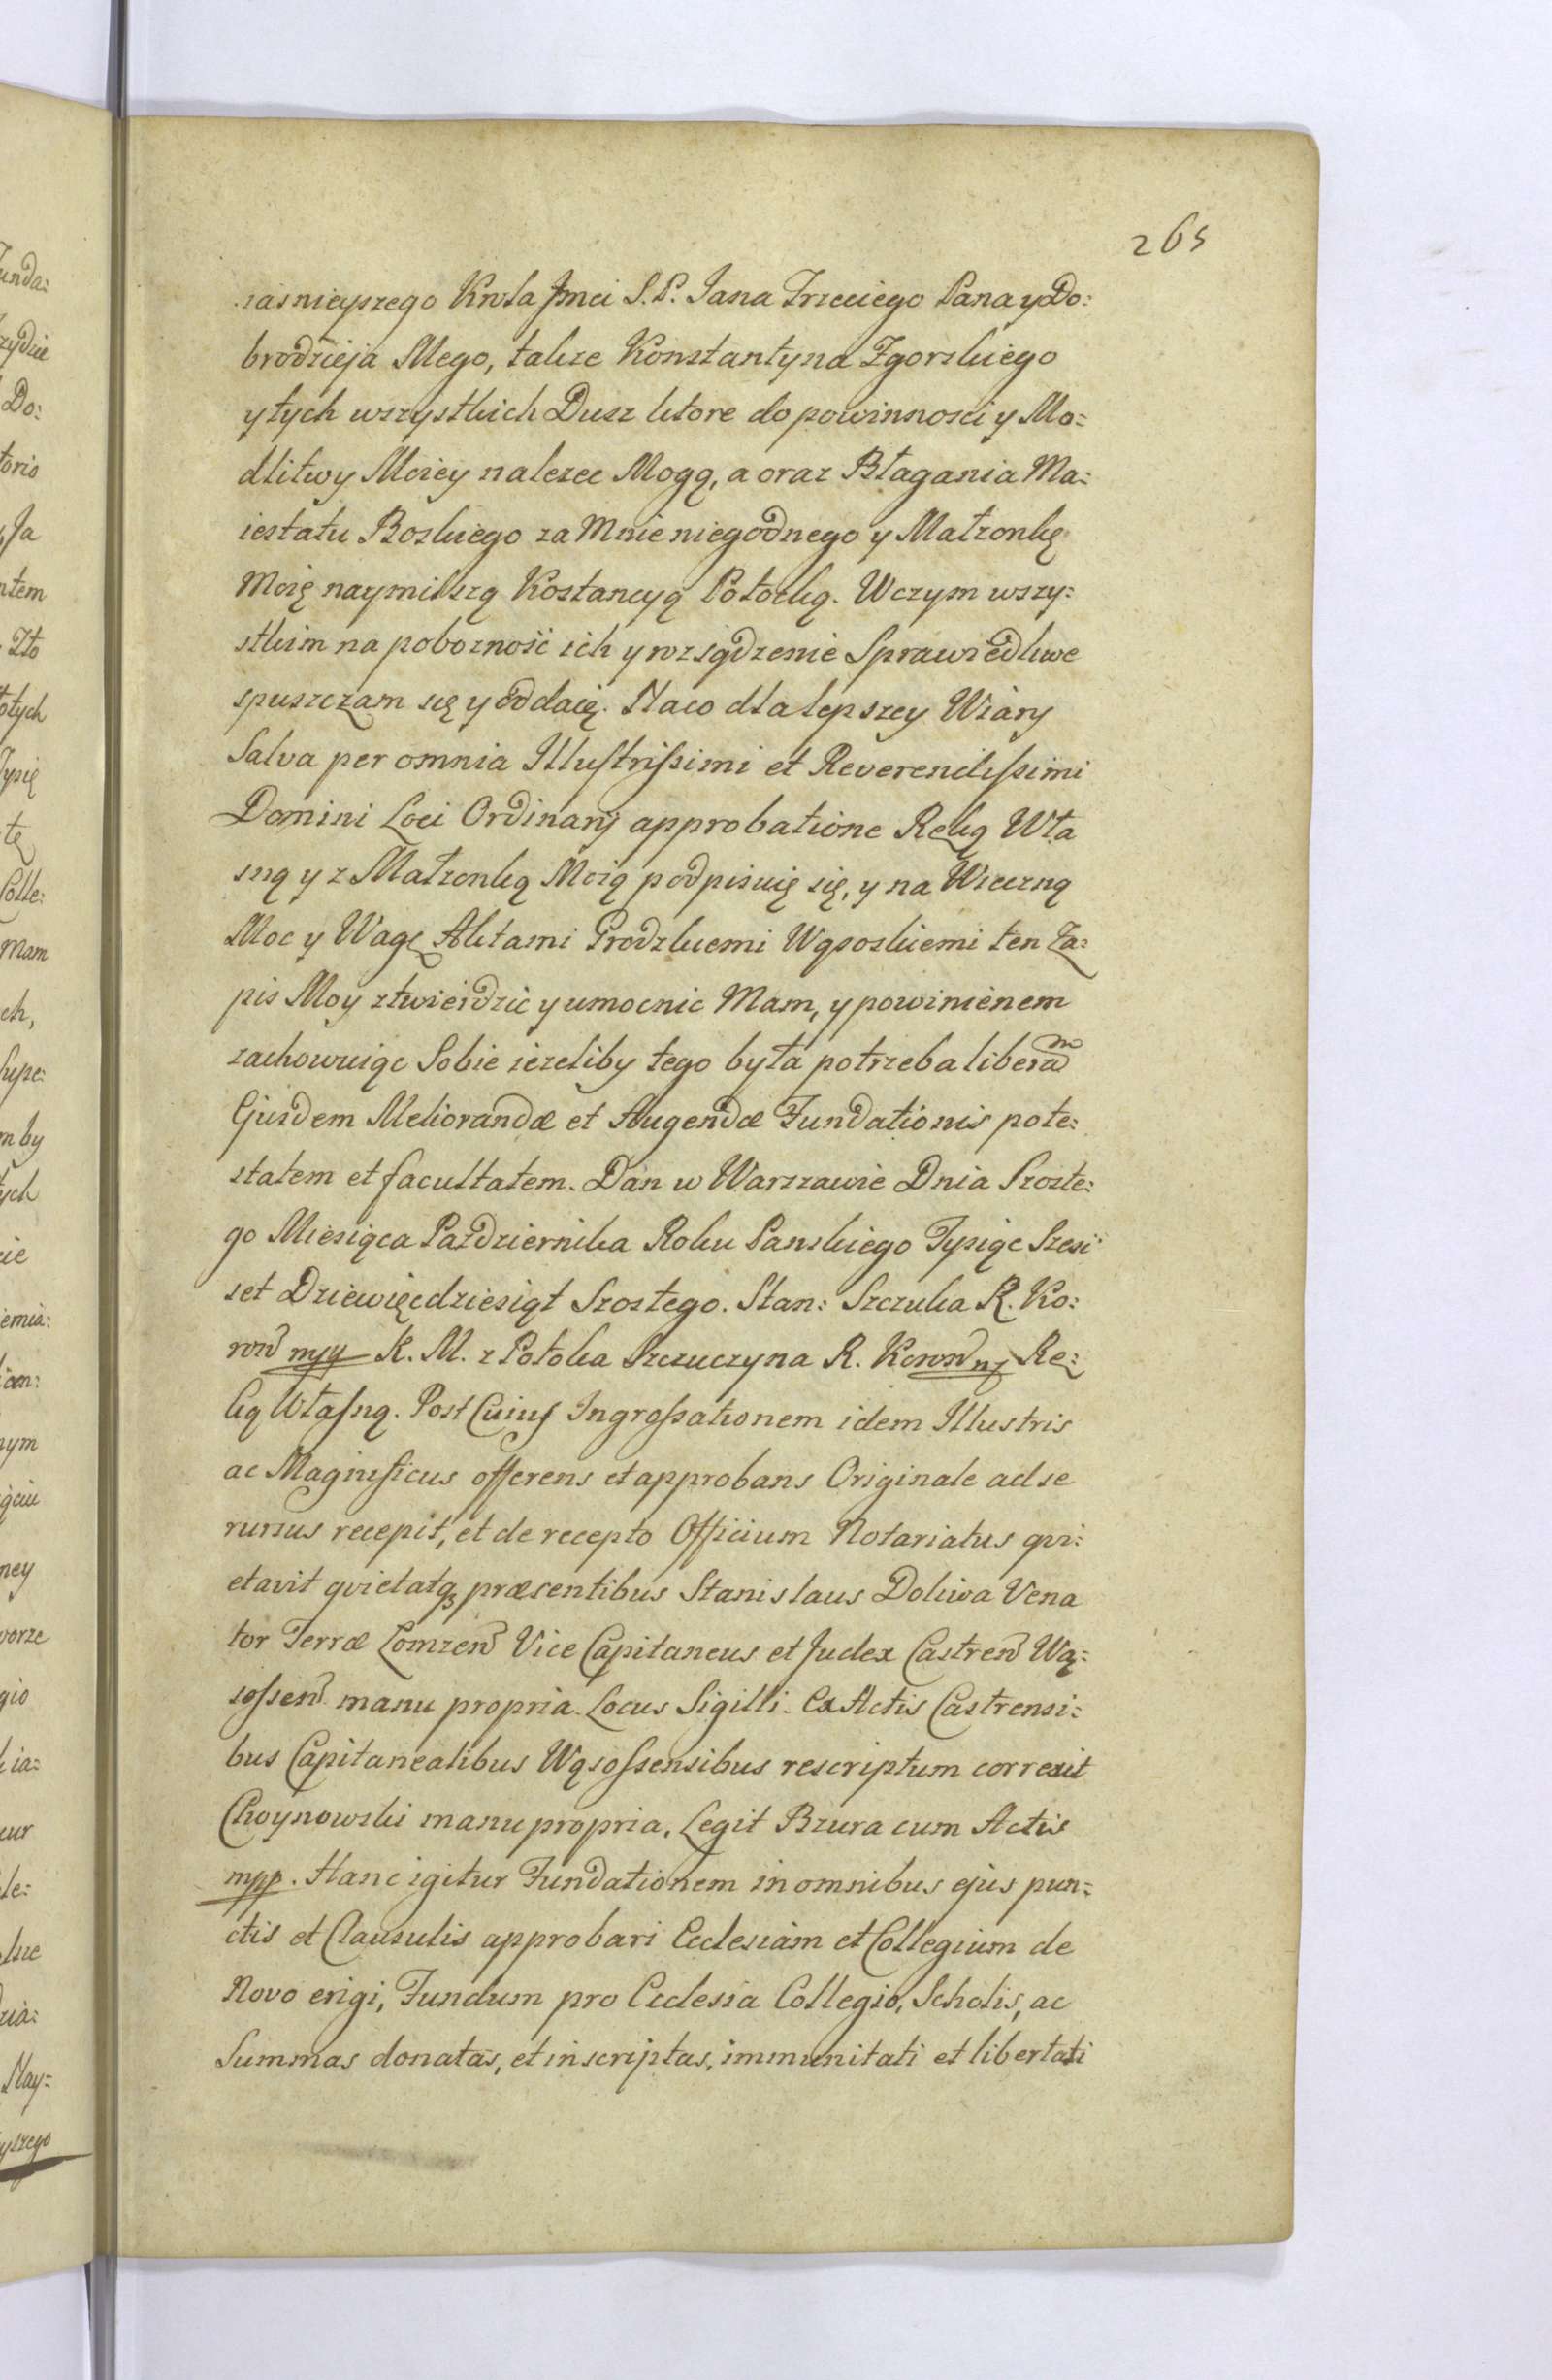 265
iasnieyszego Krola Jmci S. P. Jana Trzeciego Pana y Do:
brodzieja Mego, także Konstantyna Zgorskiego
y tych wszystkich Dusz ktore do powinnosci y Mo:
dlitwy Moiey nalezec Mogą, a oraz Błagania Ma:
iestatu Boskiego za Mnie niegodnego y Małzonkę
Moię naymilszą Kostancyą Potocką. Wczym wszy:
stkim na pobozność ich y rozsądzenie Sprawiedliwe
spuszczam się y oddaię. Naco dla lepszey Wiary
Salva per omnia Illustrissimi et Reverendissimi
Domini Loci Ordinarij approbatione Ręką Wła
sną y z Małzonką Moią podpisuię się, y na Wieczną
Moc y Wagę Aktami Grodzkiemi Wąsoskiemi ten Za:
pis Moy ztwierdzic y umocnic Mam, y powinienem
zachowuiąc Sobie iezeliby tego była potrzeba liberam
Ejusdem Meliorandæ et Augendæ Fundationis pote:
statem et facultatem. Dan w Warszawie Dnia Szoste:
go Miesiąca Października Roku Panskiego Tysiąc Szesc
set Dziewięcdziesiąt Szostego. Stan: Szczuka R. Ko:
ron mpp K. M. z Potoka Szczuczyna R. Koron Rę:
ką Własną. Post Cuius Ingrossationem idem Illustris
ac Magnificus offerens et approbans Originale ad se
rursus recepit, et de recepto Officium Notariatus qvi:
etavit qvietatq præsentibus Stanislaus Doliwa Vena
tor Terræ Łomzen Vice Capitaneus et Judex Castren Wą:
sossen manu propria. Locus Sigilli. Ex Actis Castrensi:
bus Capitanealibus Wąsossensibus rescriptum correxit
Choynowski manu propria. Legit Bzura cum Actis
mpp. Hanc igitur Fundationem in omnibus ejus pun:
ctis et Clausulis approbari Ecclesiam et Collegium de
Novo erigi, Fundum pro Ecclesia Collegio, Scholis, ac
Summas donatas, et inscriptas, immunitati et libertati